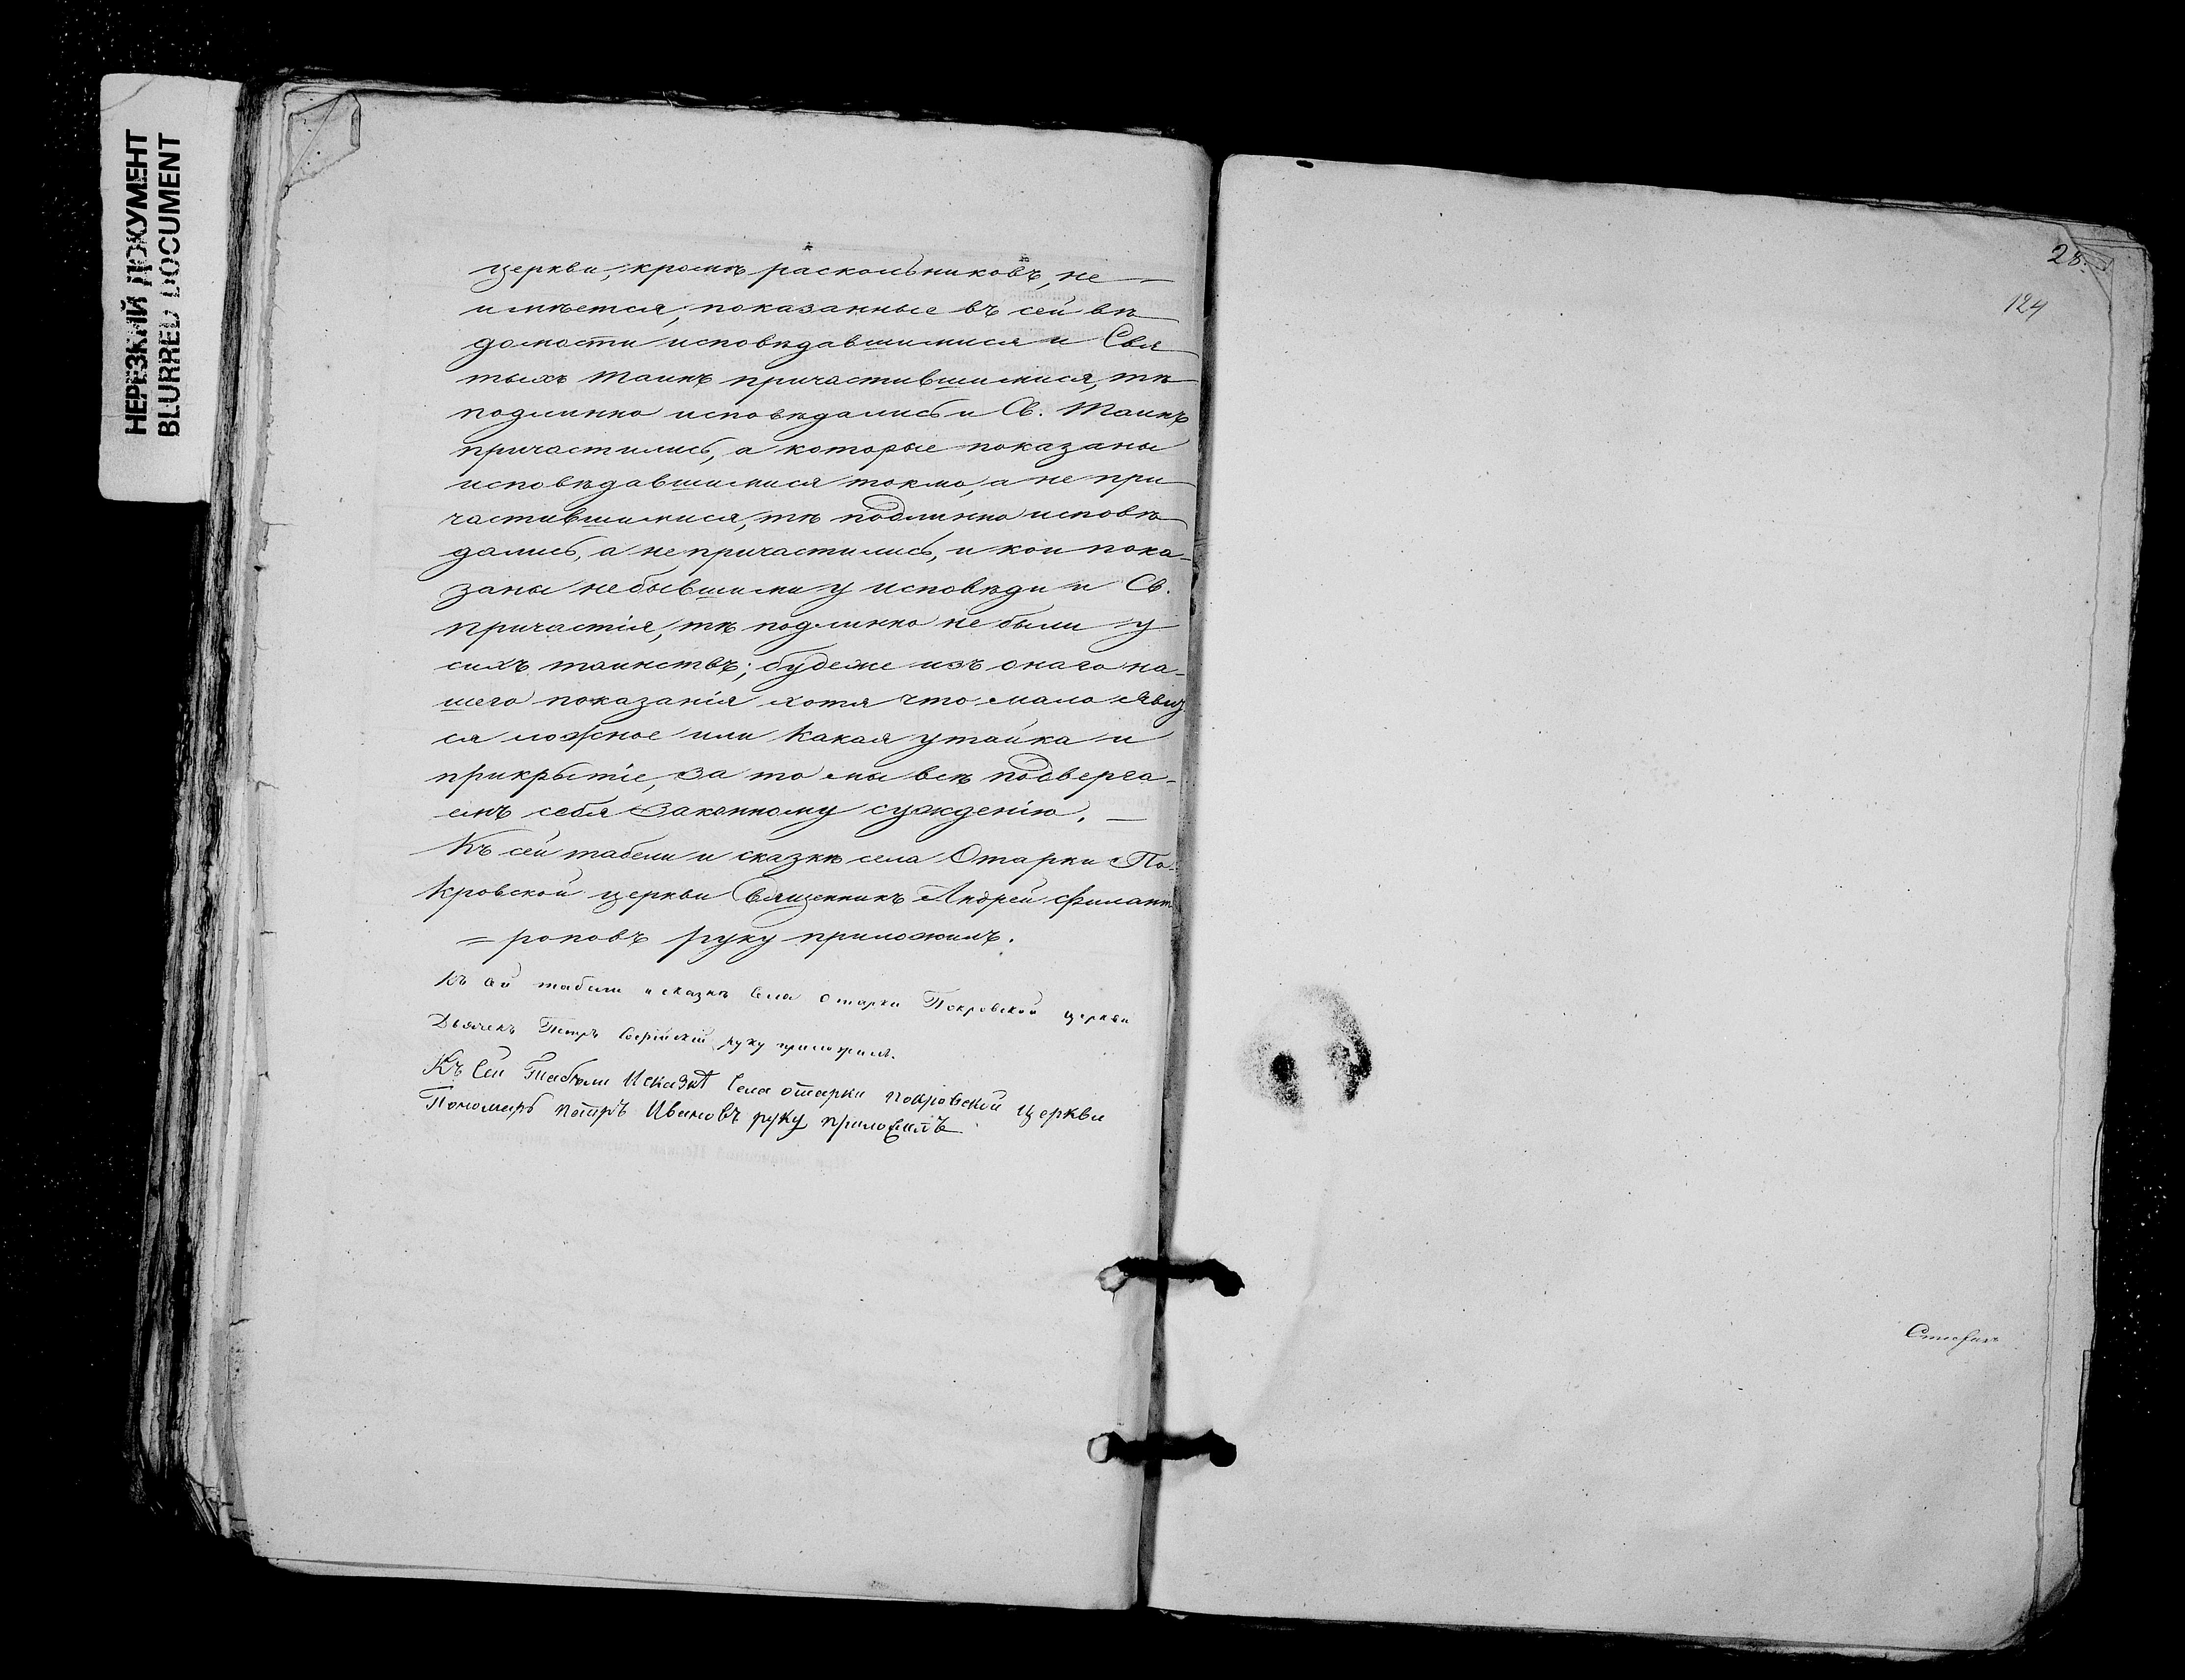 НЕРЕЗКИЙ ДОКУМЕНТ
BLURRED DOCUMENT
церкви, кромѣ раскольниковъ, не
имѣется, показанные въ сей вѣ
домости исповѣдавшимися и Свя
тыхъ Таинъ причастившимися, тѣ
подлинно исповѣдались и Св. Таинъ
причастились, а которые показаны
исповѣдавшимися токмо, а не при
частившимися, тѣ подлинно исповѣ
дались, а не причастились, и кои пока-
заны небывшими у исповѣди и Св.
причастія, тѣ подлинно не были у
сихъ таинствъ; будеже изъ онаго на-
шего показанія хотя что мало явит
ся ложное или какая утайка и
прикрытіе, за то мы всѣ подверга-
емъ себя законному сужденію. —
Къ сей табели и сказкѣ села Отарки По-
кровской церкви Священникъ Андрей Филант
= роповъ руку приложилъ.
Къ сей табели и сказкѣ села Отарки Покровской церкви
Дьячекъ Петръ руку приложилъ.
Къ Сей табели И сказкѣ Села отарки покровской Церкви
Пономарь петръ Ивановъ руку приложилъ
28.
124